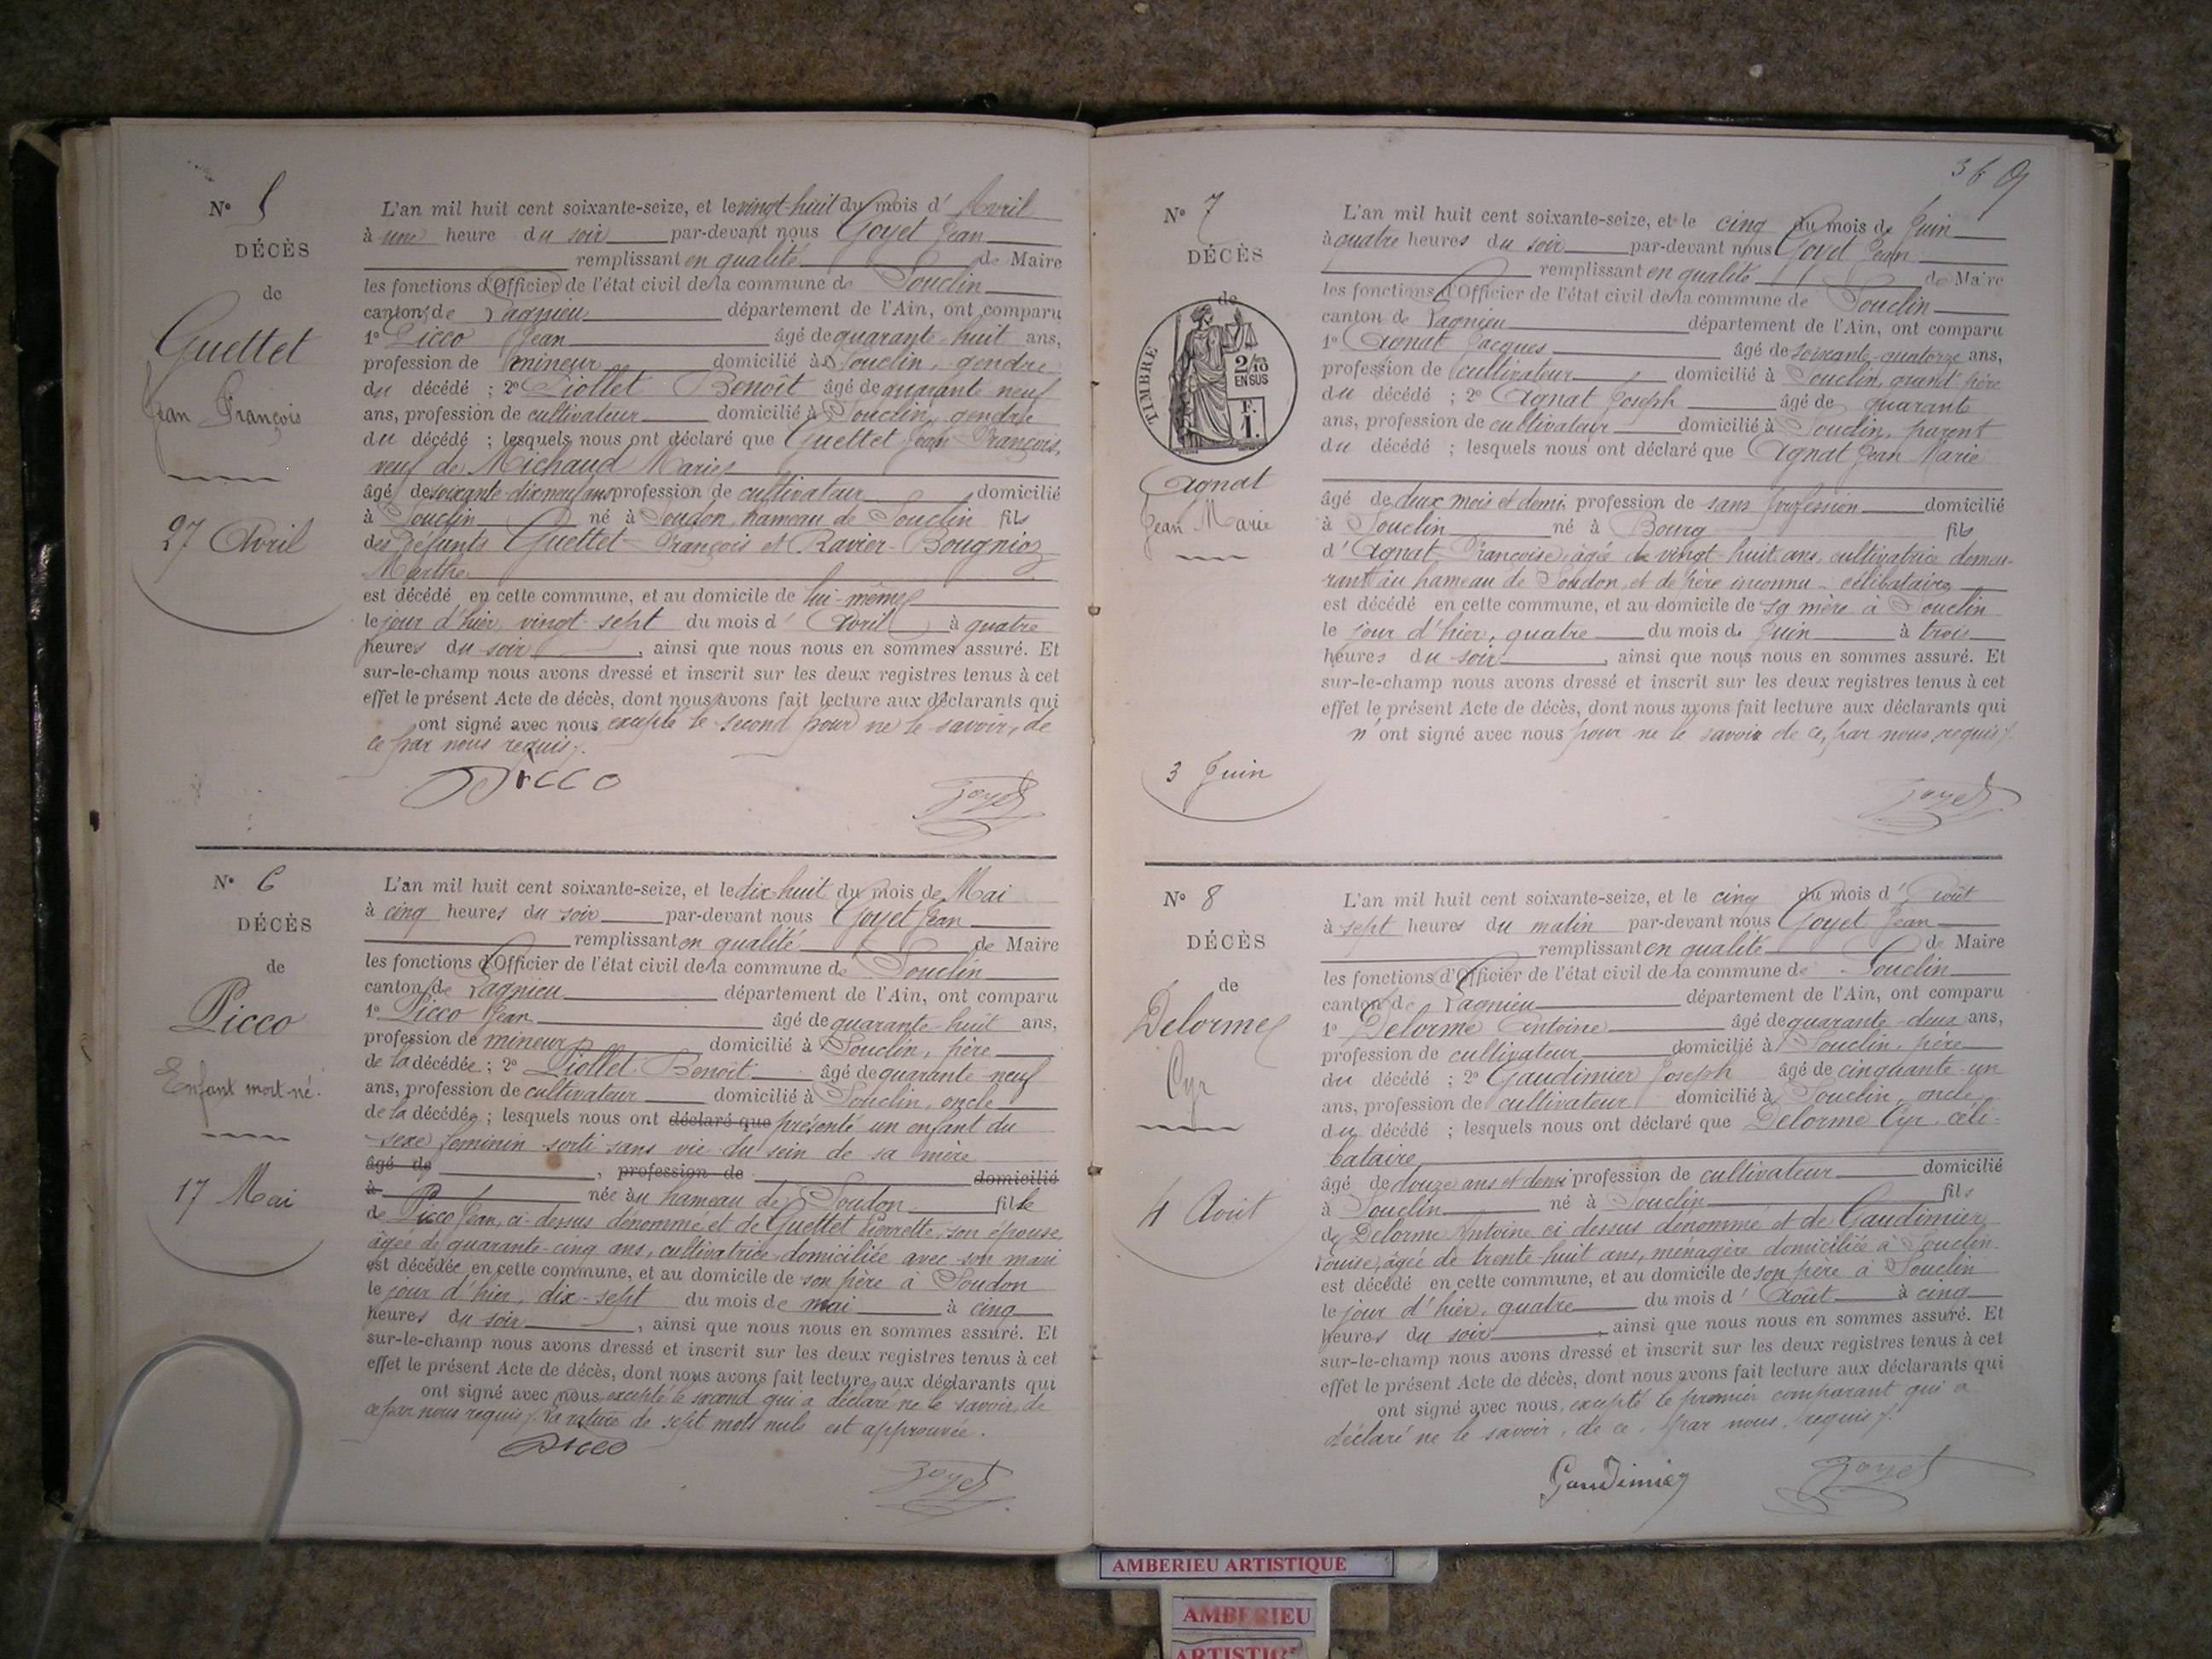 N° 5
DÉCÈS
de
Guettet
Jean François
27 Avril
L'an mil huit cent soixante-seize, et le vingt-huit du mois d' Avril
à une heure du soir par-devant nous Goyet Jean
remplissant en qualité de Maire
les fonctions d'Officier de l'état civil de la commune de Souclin
canton de Lagnieu département de l'Ain, ont comparu
1° Picco Jean âgé de quarante-huit ans,
profession de mineur domicilié à Souclin, gendre
du décédé ; 2° Piollet Benoît âgé de quarante neuf
ans, profession de cultivateur domicilié à Souclin, gendre
du décédé ; lesquels nous ont déclaré que Guettet Jean François,
veuf de Michaud Marie
âgé de soixante-dix neuf ans profession de cultivateur domicilié
à Souclin né à Soudon, hameau de Souclin fils
des défunts Guettet François et Ravier-Bougnioz
Marthe
est décédé en cette commune, et au domicile de lui-même
le jour d'hier vingt-sept du mois d' Avril à quatre
heures du soir, ainsi que nous nous en sommes assuré. Et
sur-le-champ nous avons dressé et inscrit sur les deux registres tenus à cet
effet le présent Acte de décès, dont nous avons fait lecture aux déclarants qui
ont signé avec nous excepté le second pour ne le savoir, de
ce par nous requis.
Picco
Goyet
N° 6
DÉCÈS
de
Picco
Enfant mort-né.
17 Mai
L'an mil huit cent soixante-seize, et le dix-huit du mois de Mai
à cinq heures du soir par-devant nous Goyet Jean
remplissant en qualité de Maire
les fonctions d'Officier de l'état civil de la commune de Souclin
canton de Lagnieu département de l'Ain, ont comparu
1° Picco Jean âgé de quarante-huit ans,
profession de mineur domicilié à Souclin, père
de la décédée ; 2° Piollet Benoît âgé de quarante-neuf
ans, profession de cultivateur domicilié à Souclin, oncle
de la décédée ; lesquels nous ont déclaré que présenté un enfant du
sexe féminin sorti sans vie du sein de sa mère
âgé de , profession de domicilié
à née au hameau de Soudon fille
de Picco Jean, ci-dessus dénommé, et de Guettet Pierrette, son épouse,
âgée de quarante-cinq ans, cultivatrice domiciliée avec son mari
est décédée en cette commune, et au domicile de son père à Soudon
le jour d'hier, dix-sept du mois de mai à cinq
heures du soir, ainsi que nous nous en sommes assuré. Et
sur-le-champ nous avons dressé et inscrit sur les deux registres tenus à cet
effet le présent Acte de décès, dont nous avons fait lecture aux déclarants qui
ont signé avec nous, excepté le second qui a déclaré ne le savoir, de
ce par nous requis. La rature de sept mots nuls est approuvée.
Picco
Goyet
369
N° 7
DÉCÈS
de
TIMBRE
2/10
EN SUS
F.
1.
Agnat
Jean Marie
3 Juin
L'an mil huit cent soixante-seize, et le cinq du mois de Juin
à quatre heures du soir par-devant nous Goyet Jean
remplissant en qualité de Maire
les fonctions d'Officier de l'état civil de la commune de Souclin
canton de Lagnieu département de l'Ain, ont comparu
1° Agnat Jacques âgé de soixante-quatorze ans,
profession de cultivateur domicilié à Souclin, grand-père
du décédé ; 2° Agnat Joseph âgé de quarante
ans, profession de cultivateur domicilié à Souclin, parent
du décédé ; lesquels nous ont déclaré que Agnat Jean Marie
âgé de deux mois et demi profession de sans profession domicilié
à Souclin né à Bourg fils
d' Agnat Françoise, âgée de vingt-huit ans, cultivatrice demeu-
rant au hameau de Soudon, et de père inconnu - célibataire
est décédé en cette commune, et au domicile de sa mère à Souclin
le jour d'hier, quatre du mois de Juin à trois
heures du soir, ainsi que nous nous en sommes assuré. Et
sur-le-champ nous avons dressé et inscrit sur les deux registres tenus à cet
effet le présent Acte de décès, dont nous avons fait lecture aux déclarants qui
n'ont signé avec nous pour ne le savoir de ce, par nous requis.
Goyet
N° 8
DÉCÈS
de
Delorme
Cyr
4 Août
L'an mil huit cent soixante-seize, et le cinq du mois d' Août
à sept heures du matin par-devant nous Goyet Jean
remplissant en qualité de Maire
les fonctions d'Officier de l'état civil de la commune de Souclin
canton de Lagnieu département de l'Ain, ont comparu
1° Delorme Antoine âgé de quarante-deux ans,
profession de cultivateur domicilié à Souclin, père
du décédé ; 2° Gaudimier Joseph âgé de cinquante-un
ans, profession de cultivateur domicilié à Souclin, oncle
du décédé ; lesquels nous ont déclaré que Delorme Cyr, céli-
bataire
âgé de douze ans et demi profession de cultivateur domicilié
à Souclin né à Souclin fils
de Delorme Antoine ci dessus dénommé et de Gaudimier
Louise, âgée de trente huit ans, ménagère domiciliée à Souclin
est décédé en cette commune, et au domicile de son père à Souclin
le jour d'hier, quatre du mois d' Août à cinq
heures du soir, ainsi que nous nous en sommes assuré. Et
sur-le-champ nous avons dressé et inscrit sur les deux registres tenus à cet
effet le présent Acte de décès, dont nous avons fait lecture aux déclarants qui
ont signé avec nous, excepté le premier comparant qui a
déclaré ne le savoir, de ce, par nous, requis.
Gaudimier
Goyet
AMBERIEU ARTISTIQUE
AMBERIEU
ARTISTIQUE